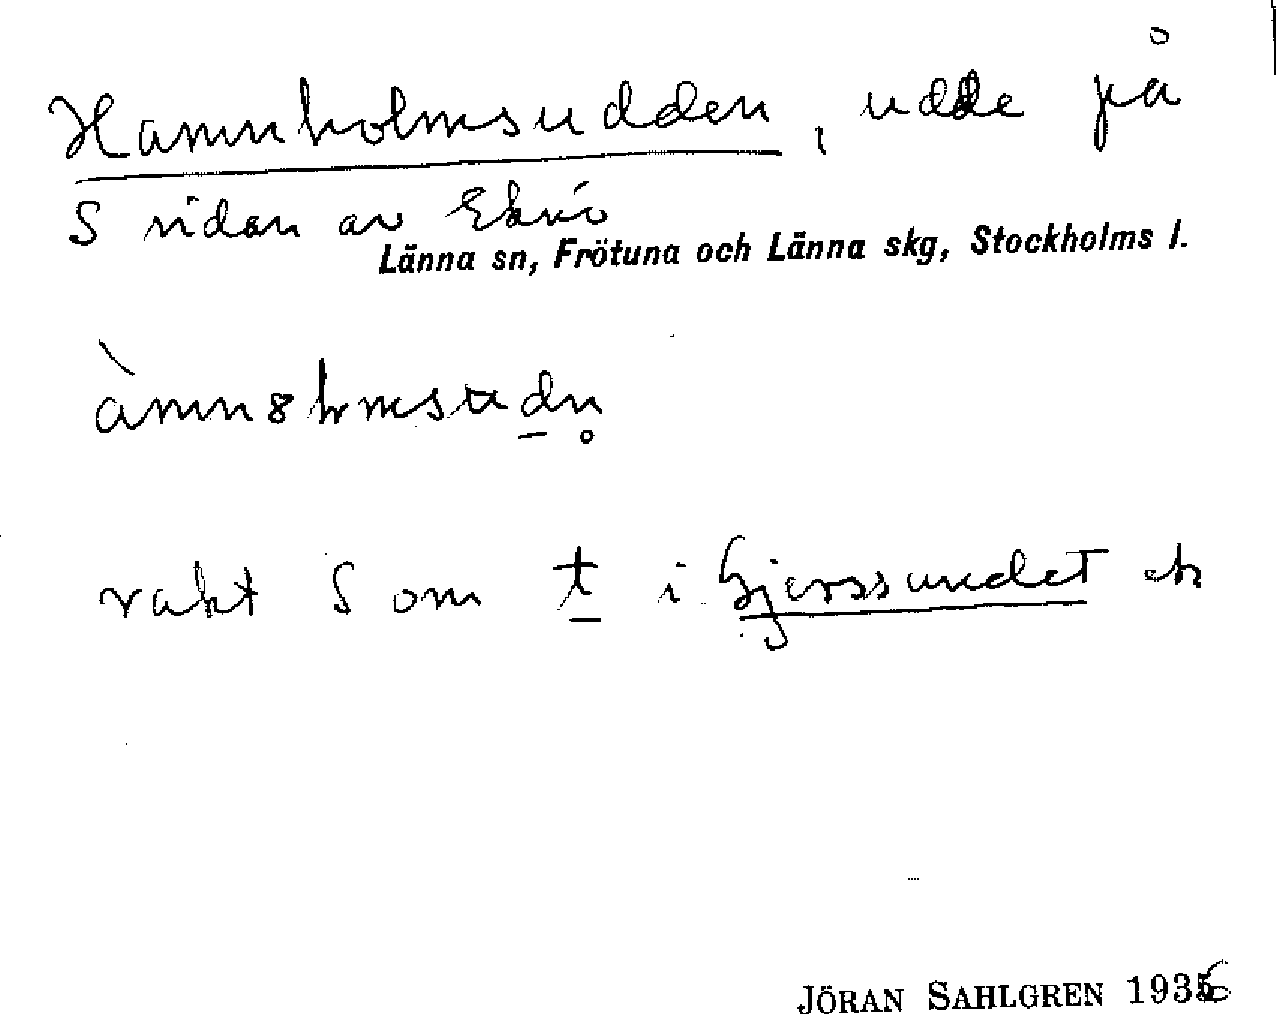 Hamnholmsudden, udde på
S sidan av Eknö
Länna sn, Frötuna och Länna skg, Stockholms l.
rakt S om t i Gjerssundet ek
JÖRAN SAHLGREN 1936